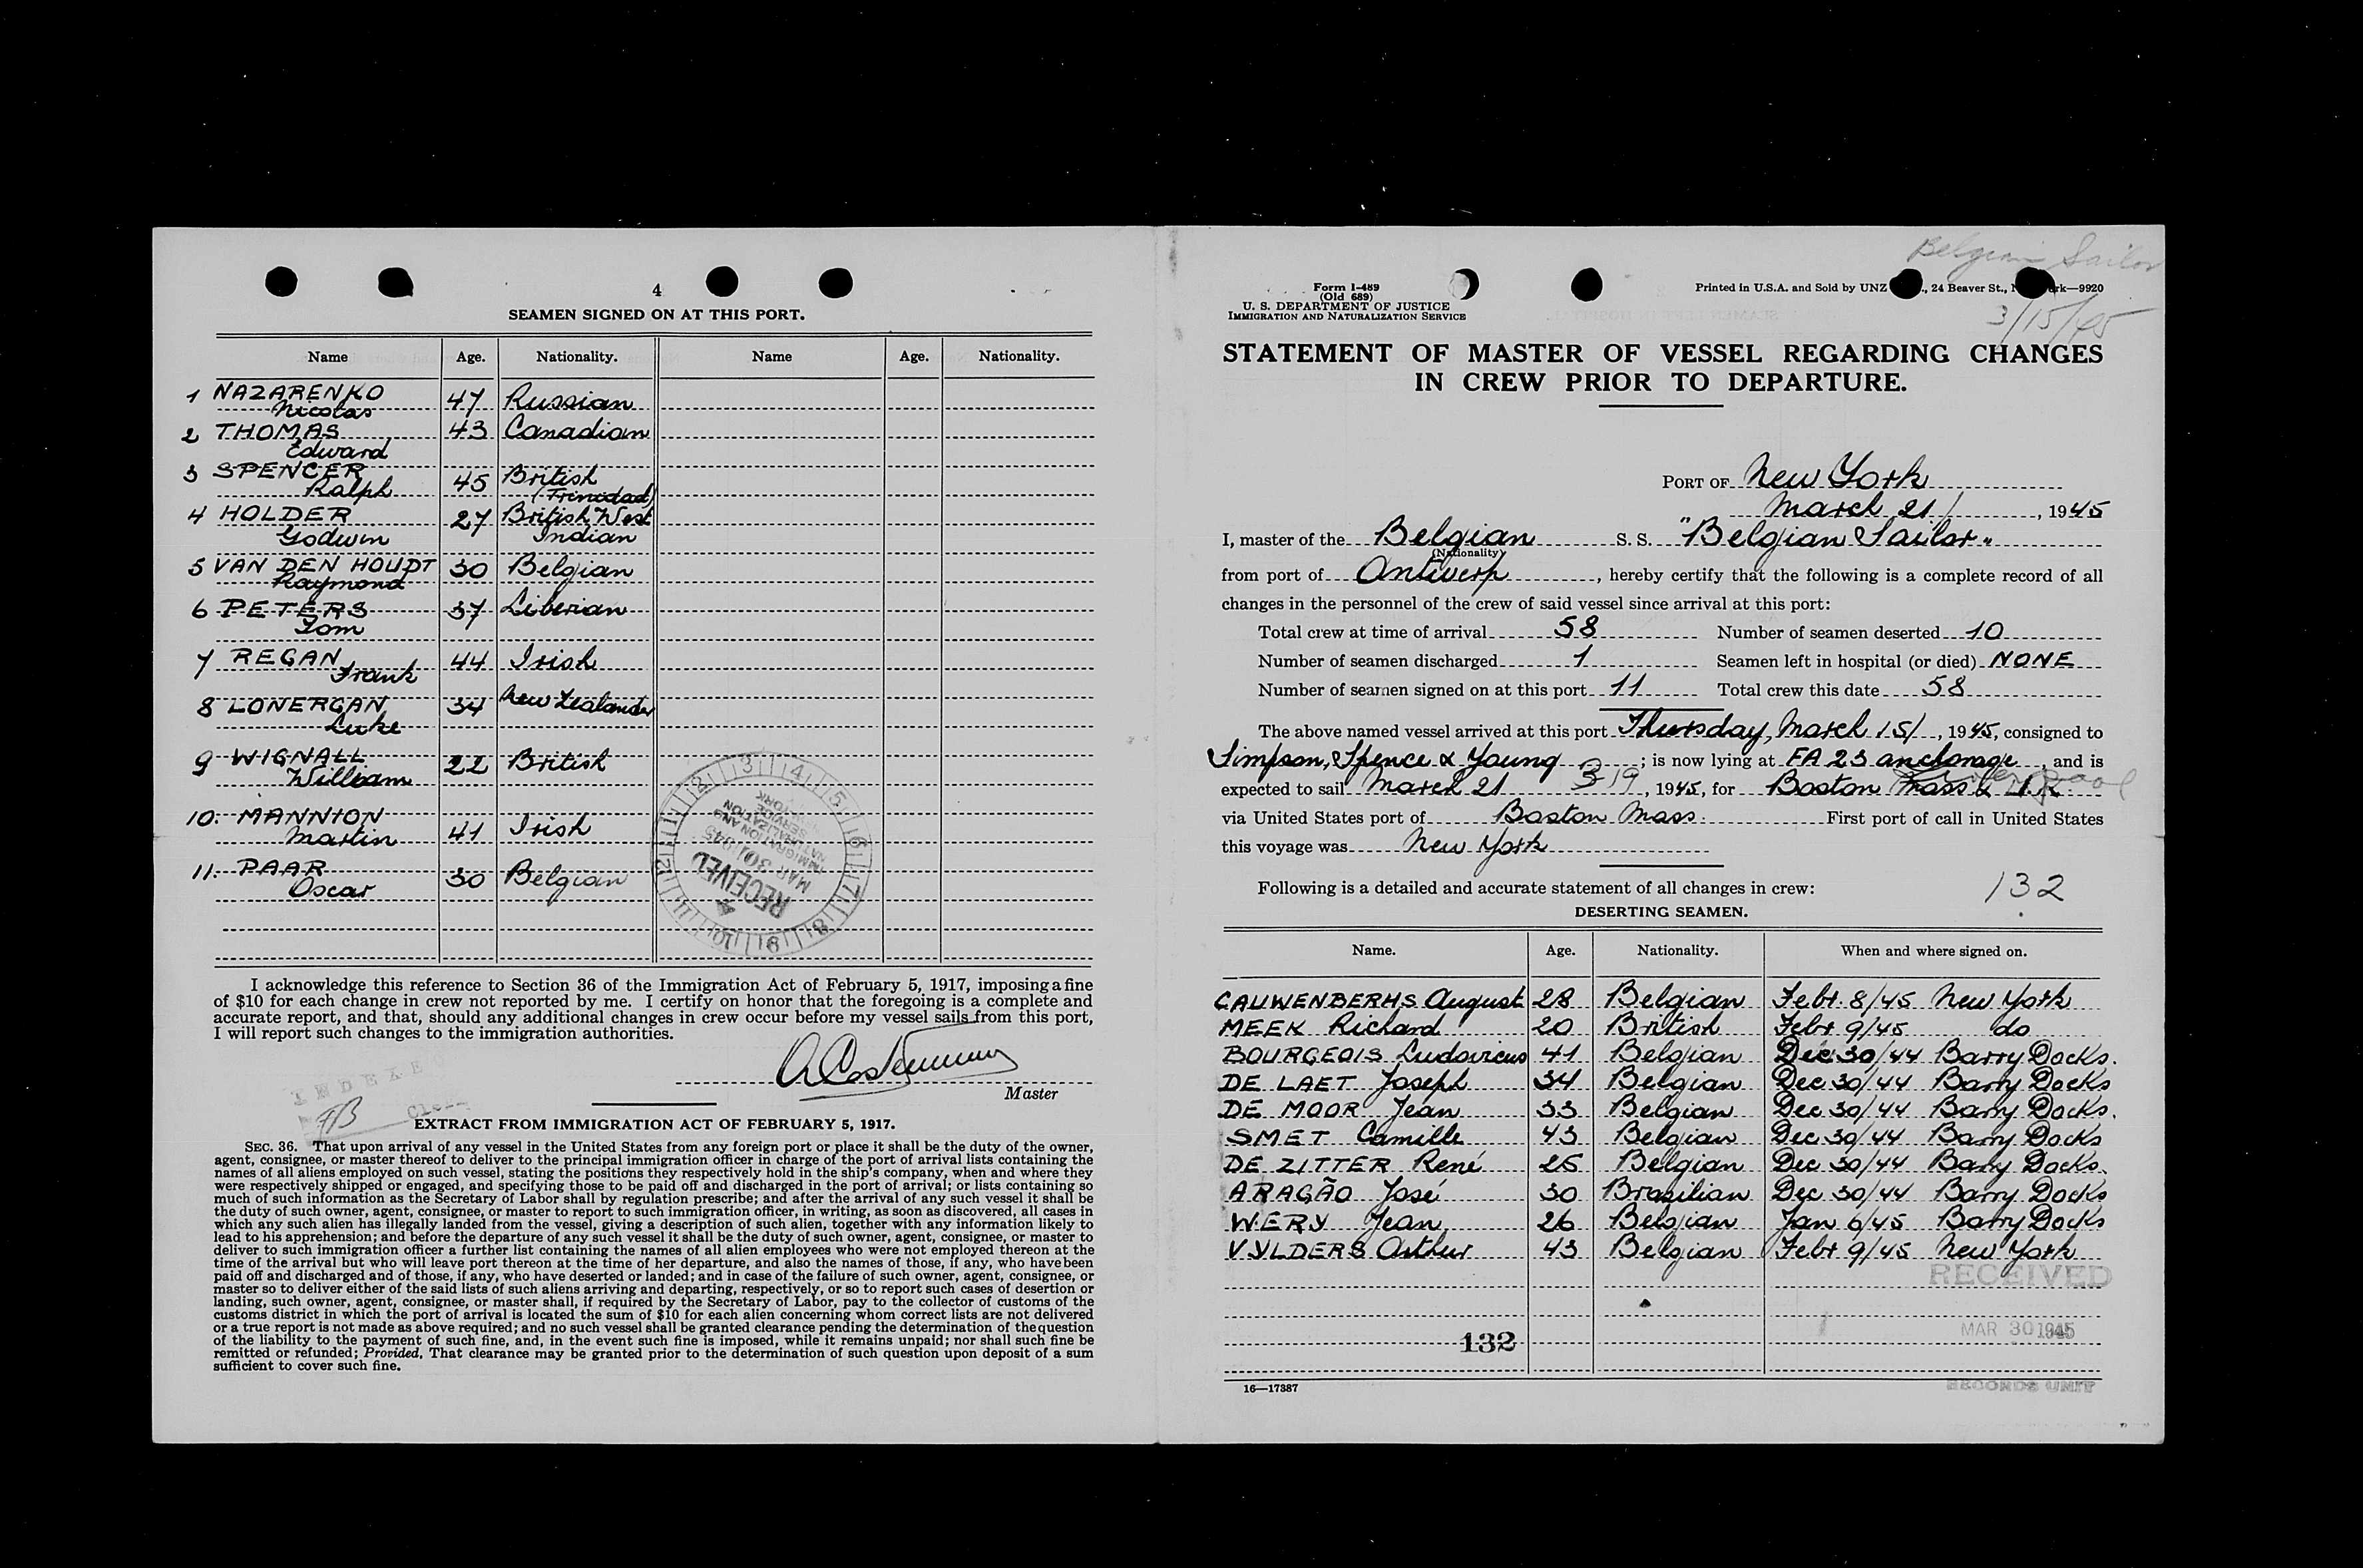 4
SEAMEN SIGNED ON AT THIS PORT.
Name Age. Nationality. Name Age. Nationality.
1 NAZARENKO Nicolas 47 Russian
2 THOMAS Edward 43 Canadian
3 SPENCER Ralph 45 British (Trinidad)
4 HOLDER Godwin 27 British West Indian
5 VAN DEN HOUDT Raymond 30 Belgian
6 PETERS Tom 37 Liberian
7 REGAN Frank 44 Irish
8 LONERGAN Luke 34 New Zealander
9 WIGNALL William 22 British
10. MANNION Martin 41 Irish
11. PAAR Oscar 30 Belgian
RECEIVED
MAR 30 1945
IMMIGRATION AND
NATURALIZATION
SERVICE
I acknowledge this reference to Section 36 of the Immigration Act of February 5, 1917, imposing a fine
of $10 for each change in crew not reported by me. I certify on honor that the foregoing is a complete and
accurate report, and that, should any additional changes in crew occur before my vessel sails from this port,
I will report such changes to the immigration authorities.
Master
EXTRACT FROM IMMIGRATION ACT OF FEBRUARY 5, 1917.
SEC. 36. That upon arrival of any vessel in the United States from any foreign port or place it shall be the duty of the owner,
agent, consignee, or master thereof to deliver to the principal immigration officer in charge of the port of arrival lists containing the
names of all aliens employed on such vessel, stating the positions they respectively hold in the ship's company, when and where they
were respectively shipped or engaged, and specifying those to be paid off and discharged in the port of arrival; or lists containing so
much of such information as the Secretary of Labor shall by regulation prescribe; and after the arrival of any such vessel it shall be
the duty of such owner, agent, consignee, or master to report to such immigration officer, in writing, as soon as discovered, all cases in
which any such alien has illegally landed from the vessel, giving a description of such alien, together with any information likely to
lead to his apprehension; and before the departure of any such vessel it shall be the duty of such owner, agent, consignee, or master to
deliver to such immigration officer a further list containing the names of all alien employees who were not employed thereon at the
time of the arrival but who will leave port thereon at the time of her departure, and also the names of those, if any, who have been
paid off and discharged and of those, if any, who have deserted or landed; and in case of the failure of such owner, agent, consignee, or
master so to deliver either of the said lists of such aliens arriving and departing, respectively, or so to report such cases of desertion or
landing, such owner, agent, consignee, or master shall, if required by the Secretary of Labor, pay to the collector of customs of the
customs district in which the port of arrival is located the sum of $10 for each alien concerning whom correct lists are not delivered
or a true report is not made as above required; and no such vessel shall be granted clearance pending the determination of the question
of the liability to the payment of such fine, and, in the event such fine is imposed, while it remains unpaid; nor shall such fine be
remitted or refunded; Provided, That clearance may be granted prior to the determination of such question upon deposit of a sum
sufficient to cover such fine.
Belgian Sailor
3/15/45
Form I-489
(Old 689)
U. S. DEPARTMENT OF JUSTICE
IMMIGRATION AND NATURALIZATION SERVICE
Printed in U.S.A. and Sold by UNZ , 24 Beaver St., —9920
STATEMENT OF MASTER OF VESSEL REGARDING CHANGES
IN CREW PRIOR TO DEPARTURE.
PORT OF New York
March 21/, 1945
I, master of the Belgian S. S. "Belgian Sailor"
(Nationality)
from port of Antwerp, hereby certify that the following is a complete record of all
changes in the personnel of the crew of said vessel since arrival at this port:
Total crew at time of arrival 58 Number of seamen deserted 10
Number of seamen discharged 1 Seamen left in hospital (or died) NONE
Number of seamen signed on at this port 11 Total crew this date 58
The above named vessel arrived at this port Thursday, March 15/, 1945, consigned to
Simpson, Spence & Young; is now lying at FA 23 anchorage, and is
expected to sail March 21 3/19, 1945, for Boston Mass & U.K. Liverpool
via United States port of Boston Mass. First port of call in United States
this voyage was New York
Following is a detailed and accurate statement of all changes in crew:
132
DESERTING SEAMEN.
Name. Age. Nationality. When and where signed on.
CAUWENBERHS August 28 Belgian Febr. 8/45 New York
MEEK Richard 20 British Febr 9/45 do
BOURGEOIS Ludovicus 41 Belgian Dec 30/44 Barry Docks.
DE LAET Joseph 34 Belgian Dec 30/44 Barry Docks
DE MOOR Jean 33 Belgian Dec 30/44 Barry Docks.
SMET Camille 43 Belgian Dec 30/44 Barry Docks
DE ZITTER René 25 Belgian Dec 30/44 Barry Docks.
ARAGÃO José 30 Brasilian Dec 30/44 Barry Docks
WERY Jean 26 Belgian Jan 6/45 Barry Docks
VYLDERS Arthur 43 Belgian Febr 9/45 New York
RECEIVED
MAR 30 1945
132
RECORDS UNIT
16—17387